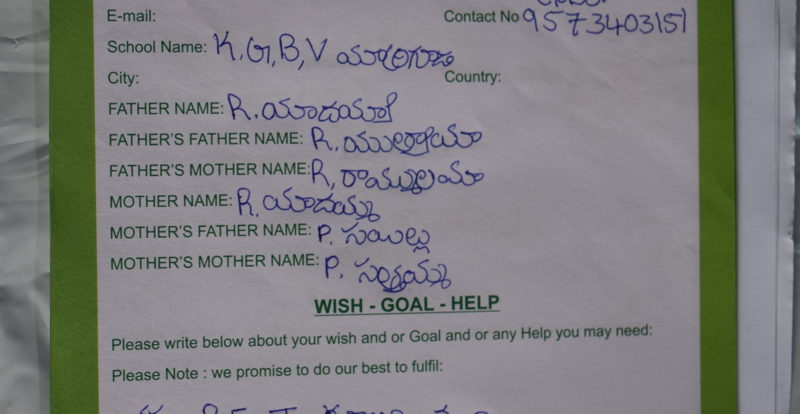 E-mail: Contact No 9573403151
School Name: K.G,B,V
City: Country:
FATHER NAME: R. యాదయ్య
FATHER'S FATHER NAME: R. ముత్తయ్య
FATHER'S MOTHER NAME: R, రాములమ్మ
MOTHER NAME: R. యాదమ్మ
MOTHER'S FATHER NAME: P. సయిల్లు
MOTHER'S MOTHER NAME: P. సత్తమ్మ
WISH - GOAL - HELP
Please write below about your wish and or Goal and or any Help you may need:
Please Note : we promise to do our best to fulfil: